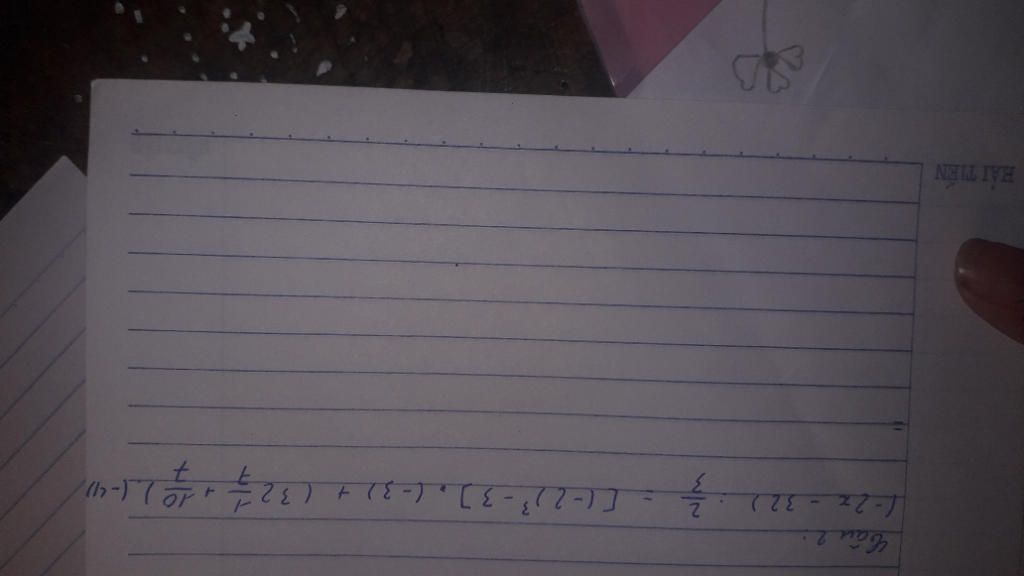 HẢI TIẾN
Câu 2:
(-2x - 32) : 2/3 = [(-2)³ - 3] . (-3) + (32 1/7 + 10/7) . (-4)
=